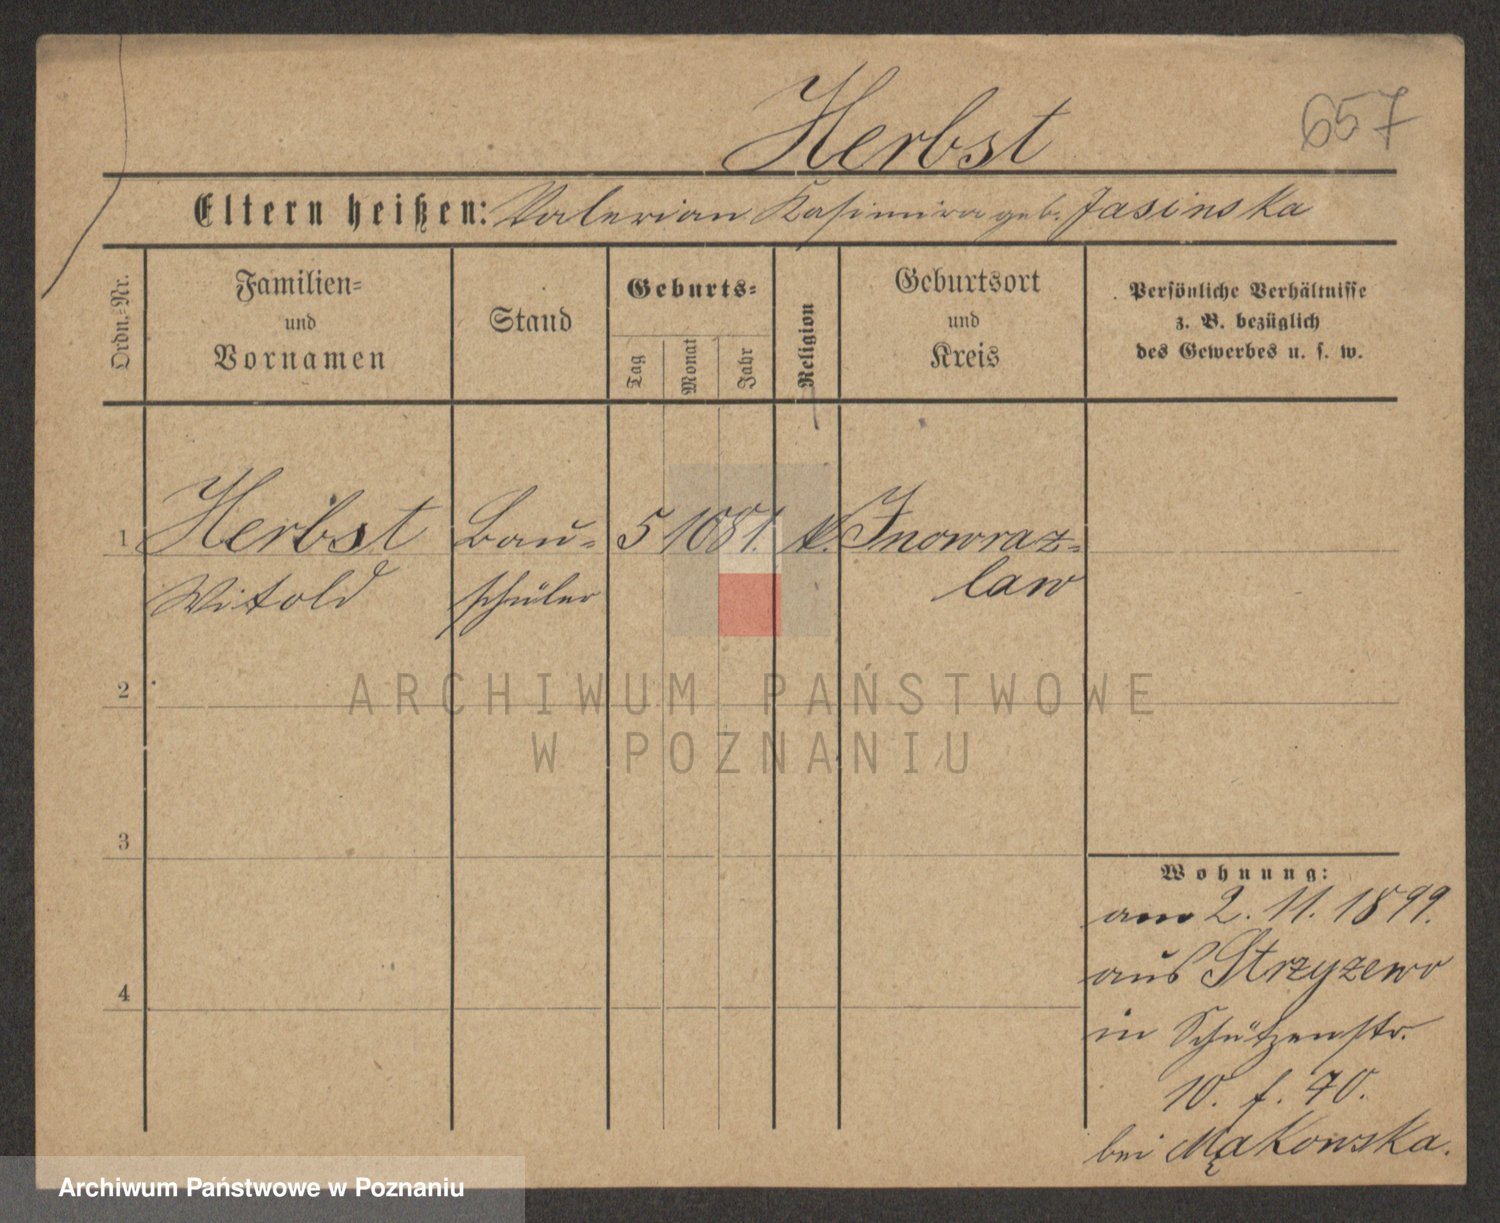 Herbst
657
Eltern heißen: Valerian Kasimira geb. Jasinska
Ordn.-Nr.
Familien-
und
Vornamen
Stand
Geburts-
Tag
Monat
Jahr
Religion
Geburtsort
und
Kreis
Persönliche Verhältnisse
z. B. bezüglich
des Gewerbes u. s. w.
1 Herbst Bau- 5 10 81. k. Inowraz-
Witold schüler law
2
ARCHIWUM PAŃSTWOWE
W POZNANIU
3
4
Wohnung:
am 2. 11. 1899.
aus Strzyzewo
in Schützenstr.
10. f. 70.
bei Mąkowska.
Archiwum Państwowe w Poznaniu